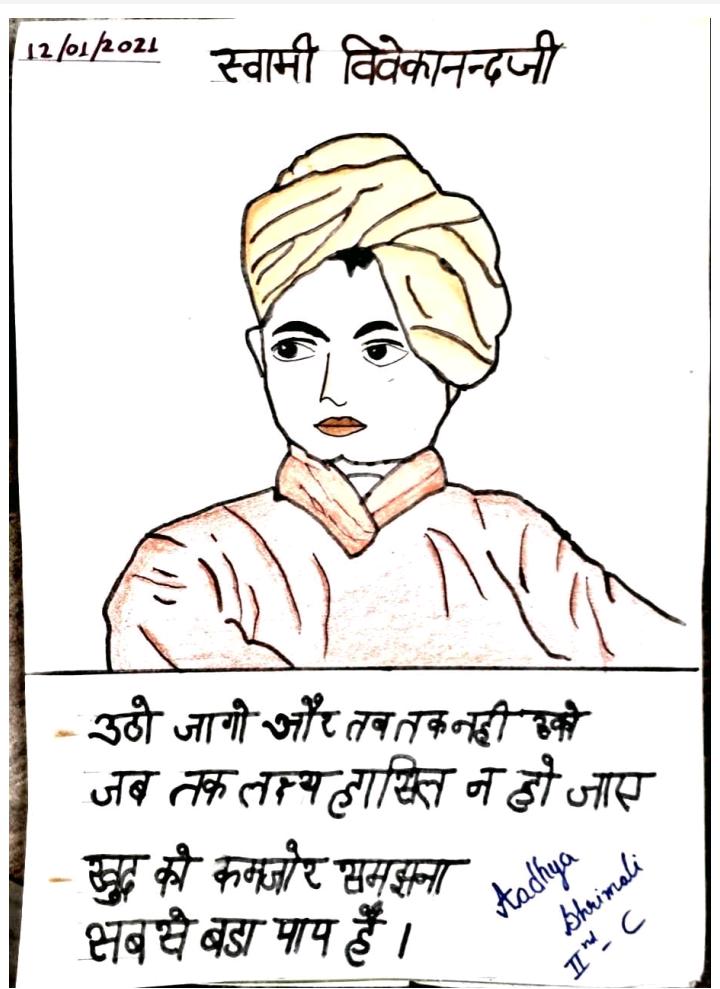 12/01/2021
स्वामी विवेकानन्दजी
- उठो जागो और तब तक नही रुको
जब तक लक्ष्य हासिल न हो जाए
- खुद को कमजोर समझना
सबसे बडा पाप हैं ।
Aadhya
Shrimali
IInd - C